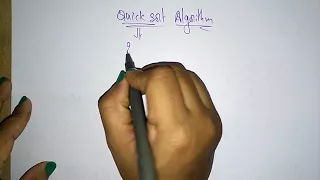 Quick sort Algorithm
It